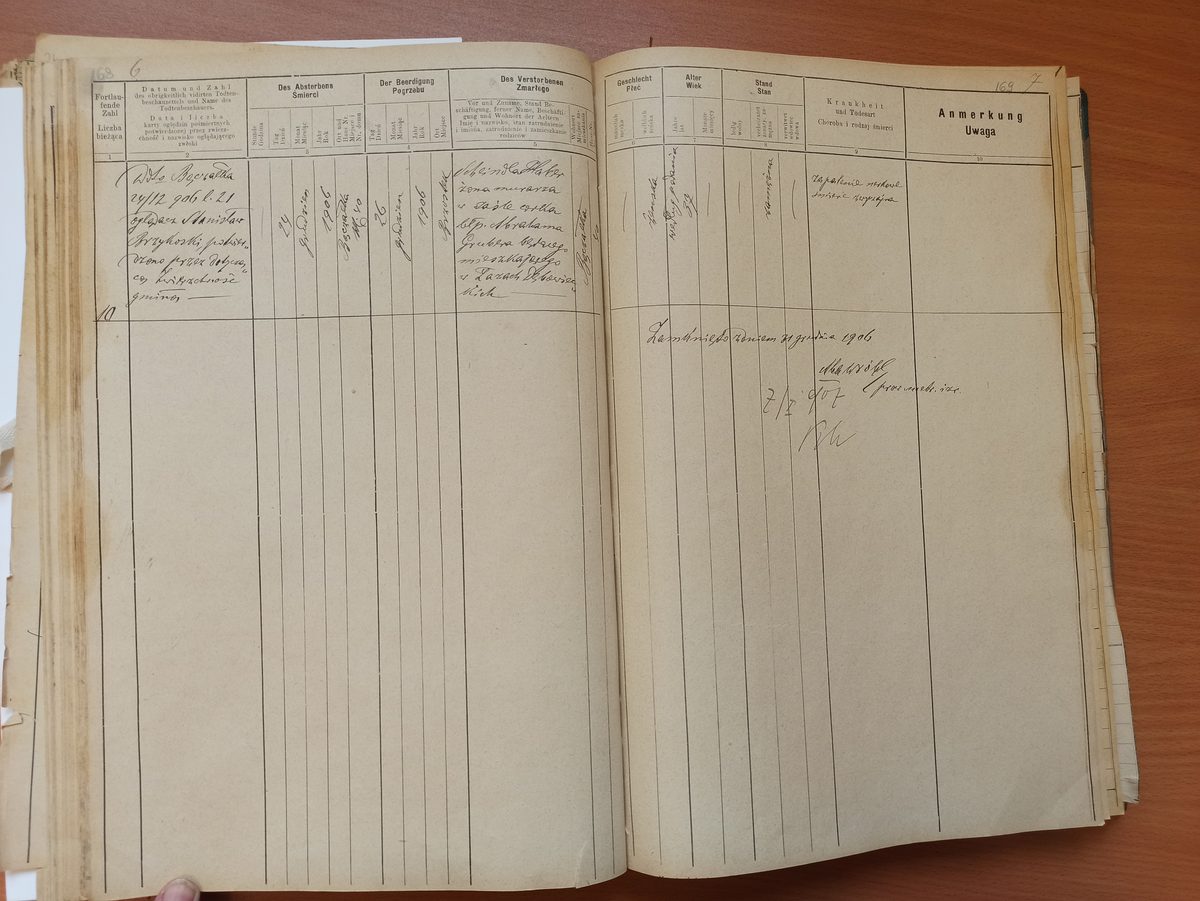 168 6
Fortlau-
fende
Zahl
Liczba
bieżąca
Datum und Zahl
des obrigkeitlich vidirten Todten-
beschauzettels und Name des
Todtenbeschauers.
Data i liczba
karty oględzin pośmiertnych
potwierdzonej przez zwierz-
chność i nazwisko oglądającego
zwłoki
Des Absterbens
Śmierci
Stunde
Godzina
Tag
Dzień
Monat
Miesiąc
Jahr
Rok
Ort und
Haus Nr.
Miejsce i
Nr. domu
Der Beerdigung
Pogrzebu
Tag
Dzień
Monat
Miesiąc
Jahr
Rok
Ort
Miejsce
Des Verstorbenen
Zmarłego
Vor und Zuname, Stand Be-
schäftigung, ferner Name, Beschäfti-
gung und Wohnort der Aeltern
Imię i nazwisko, stan zatrudnienie
i imiona, zatrudnienie i zamieszkanie
rodziców
1 2 3 4 5
24/12 906 l. 21
oglądacz Stanisław
przez dotyczą-
cą zwierzchność
gminną
10
24
grudzień
1906
26
grudzień
1906
żona murarza
w Jaśle córka
śtp. Abrahama
Grubera
mieszkającego
w Łazach Dębowiec-
kich
169 7
Geschlecht
Płeć
männlich
męska
weiblich
żeńska
Alter
Wiek
Jahre
lat
Monate
miesięcy
Stand
Stan
ledig
wolny
verheiratet
żonaty za-
mężna
verwitwet
wdowiec
wdowa
Krankheit
und Todesart
Choroba i rodzaj śmierci
Anmerkung
Uwaga
6 7 8 9 10
żeńska
według podania
zamężna
zapalenie nerkowe
śmierć zwyczajna
Zamknięto z dniem 31 grudnia 1906
prow. metr. izr.
7/I 907